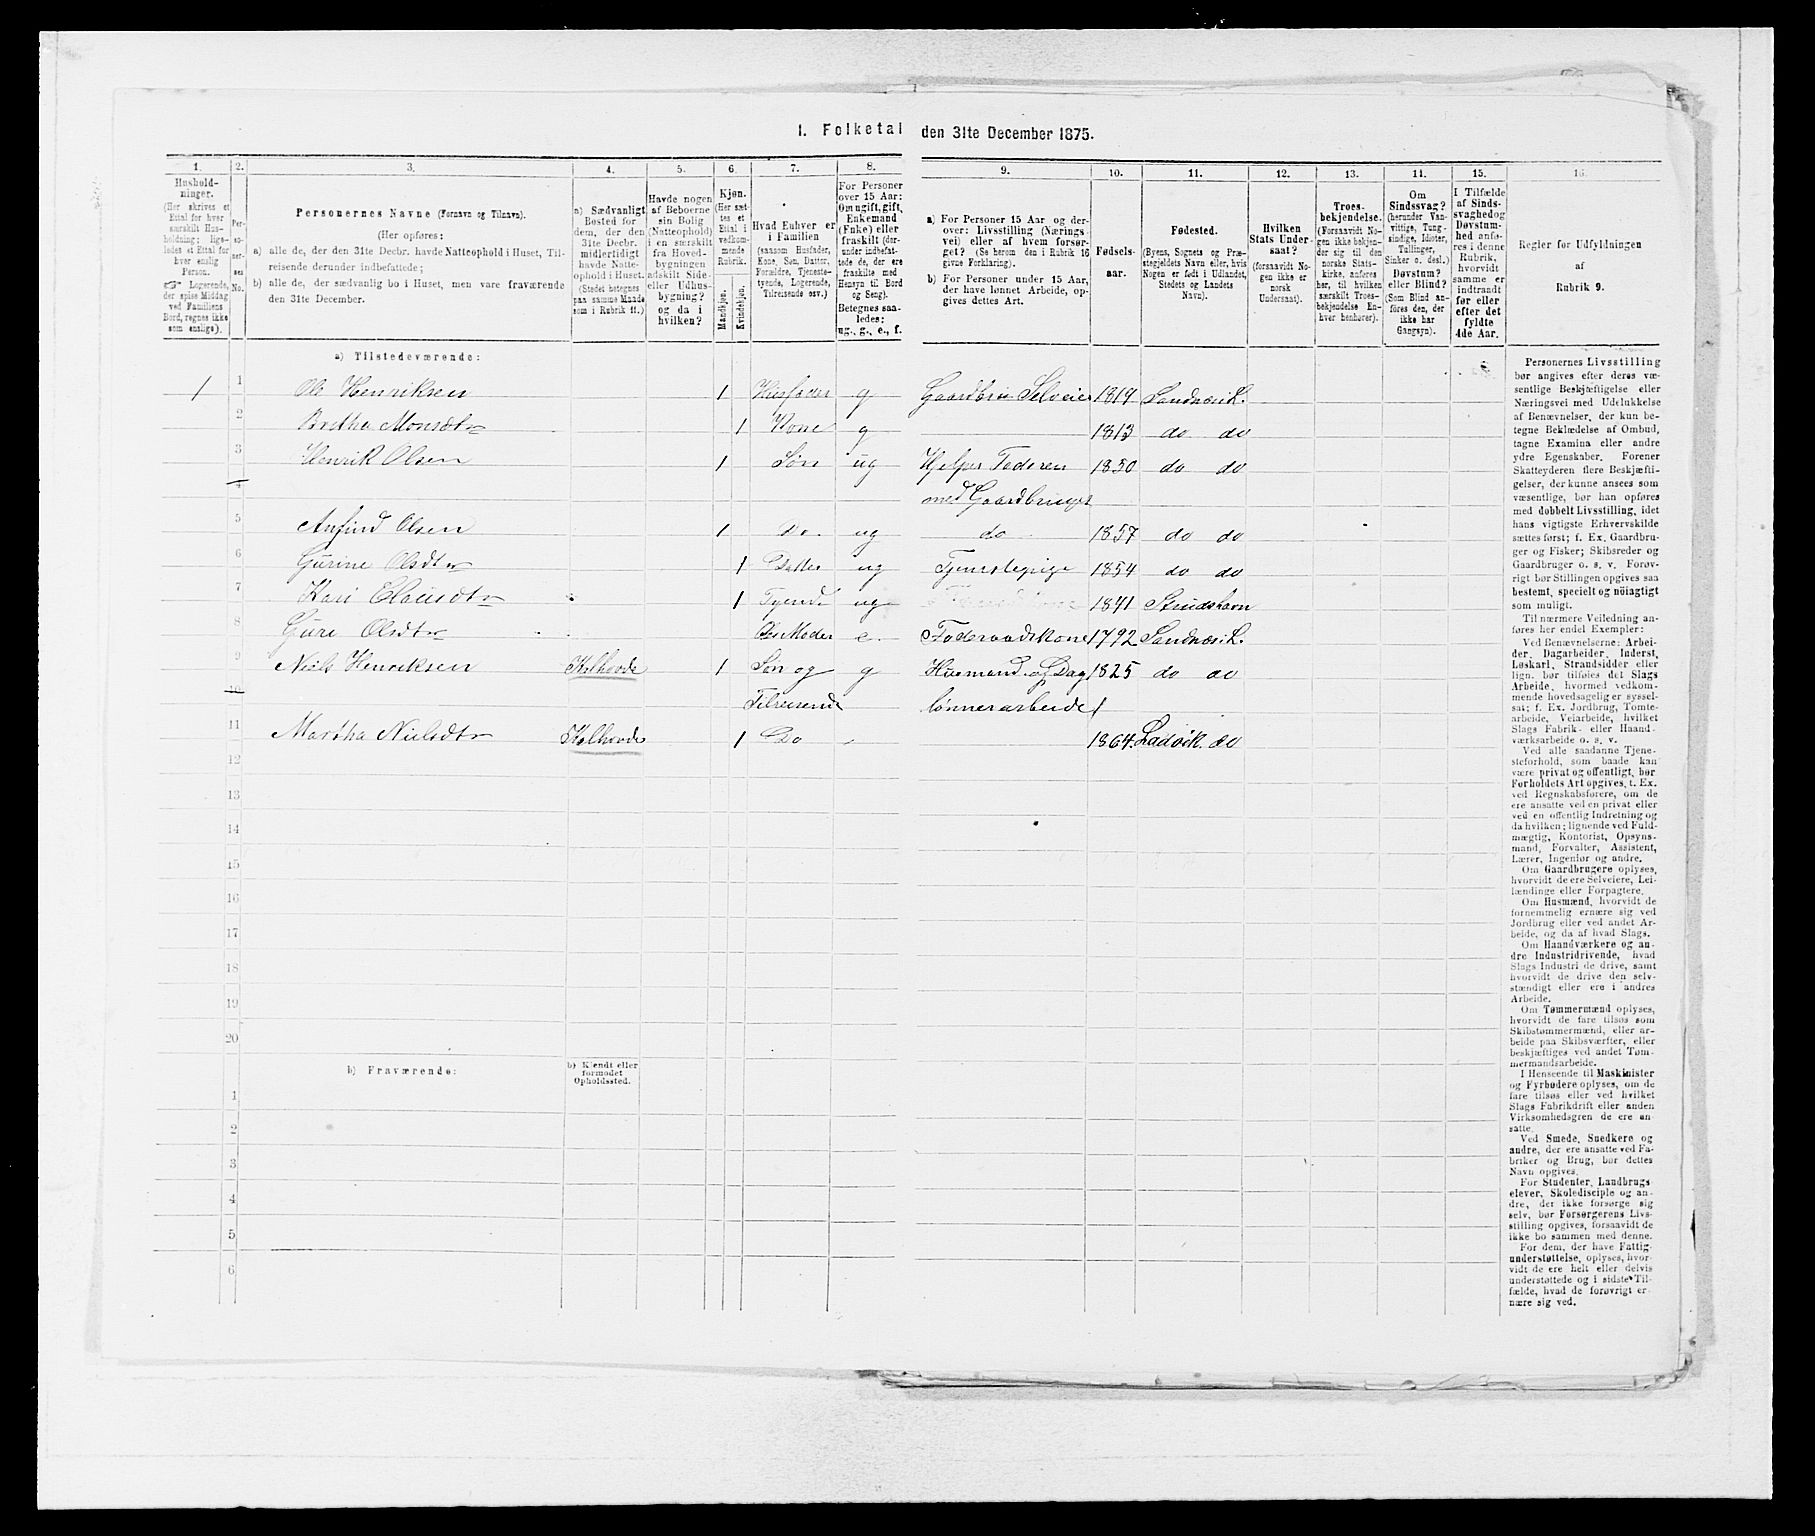 1. Folketal den 31te December 1875.
1. 2. 3. 4. 5. 6. 7. 8. 9. 10. 11. 12. 13. 11. 15. 16.
Hushold-
ninger.
(Her skrives et
Ettal for hver
særskilt Hus-
holdning; lige-
ledes et Ettal for
hver enslig
Person.
☞ Logerende,
der spise Middag
ved Familiens
Bord, regnes ikke
som enslige).
Per-
so-
ner-
nes
No.
Personernes Navne (Fornavn og Tilnavn).
(Her opføres:
a) alle de, der den 31te Decbr. havde Natteophold i Huset, Til-
reisende derunder indbefattede;
b) alle de, der sædvanlig bo i Huset, men vare fraværende
den 31te December.
a) Sædvanligt
Bosted for
dem, der den
31te Decbr.
midlertidigt
havde Natte-
ophold i Huset.
(Stedet betegnes
paa samme Maade
som i Rubrik 11.)
Havde nogen
af Beboerne
sin Bolig
(Natteophold)
i en særskilt
fra Hoved-
bygningen
adskilt Side-
eller Udhus-
bygning?
og da i
hvilken?
Kjøn.
(Her sæt-
tes et
Ettal i
vedkom-
mende
Rubrik.
Mandkjøn.
Kvindekjøn.
Hvad Enhver er
i Familien
(saasom Husfader,
Kone, Søn, Datter,
Forældre, Tjeneste-
tyende, Logerende,
Tilreisende osv.)
For Personer
over 15 Aar:
Om ugift, gift,
Enkemand
(Enke) eller
fraskilt (der-
under indbefat-
tede de, der ere
fraskilte med
Hensyn til Bord
og Seng).
Betegnes saa-
ledes:
ug., g., e., f.
a) For Personer 15 Aar og der-
over: Livsstilling (Nærings-
vei) eller af hvem forsør-
get? (Se herom den i Rubrik 16
givne Forklaring).
b) For Personer under 15 Aar,
der have lønnet Arbeide, op-
gives dettes Art.
Fødsels-
aar.
Fødested.
(Byens, Sognets og Præ-
stegjeldets Navn eller, hvis
Nogen er født i Udlandet,
Stedets og Landets
Navn).
Hvilken
Stats Under-
saat?
(forsaavidt No-
gen ikke er
norsk
Undersaat).
Troes-
bekjendelse.
(Forsaavidt No-
gen ikke bekjen-
der sig til den
norske Stats-
kirke, anføres
her, til hvilken
særskilt Troes-
bekjendelse En-
hver henhører).
Om
Sindssvag?
(herunder Van-
vittige, Tung-
sindige, Idioter,
Tullinger,
Sinker o. desl.)
Døvstum?
eller Blind?
(Som Blind an-
føres den, der
ikke har
Gangsyn).
I Tilfælde
af Sinds-
svaghed og
Døvstum-
hed anfø-
res i denne
Rubrik,
hvorvidt
samme er
indtraadt
før eller
efter det
fyldte
4de Aar.
Regler for Udfyldningen
af
Rubrik 9.
a) Tilstedeværende:
1 1 Ole Henriksen 1 Husfader g Gaardbru Selveier 1819 Sandnæs K.
2 Britha Monsdtr 1 Kone g 1813 do do
3 Henrik Olsen 1 Søn ug Hjelper Faderen 1850 do do
4 med Gaardbruget
5 Anfind Olsen 1 Do ug do 1857 do do
6 Gurine Olsdtr 1 Datter ug Tjenestepige 1854 do do
7 Kari Elausdtr 1 Tyende ug 1841
8 Guri Olsdtr Moder e. Føderaadskone 1792 Sandnæs K.
9 Niels Henriksen Kolhovde 1 Søn og g Husmand og Dag 1825 do do
10 Tilreisende lønnerarbeide
11 Martha Nielsdtr Kolhovde 1 Do 1864 Ladvik do
12
13
14
15
16
17
18
19
20
b) Fraværende:
b) Kjendt eller
formodet
Opholdssted.
1
2
3
4
5
6
Personernes Livsstilling
bør angives efter deres væ-
sentlige Beskjæftigelse eller
Næringsvei med Udelukkelse
af Benævnelser, der kun be-
tegne Beklædelse af Ombud,
tagne Examina eller andre
ydre Egenskaber. Forener
Skatteyderen flere Beskjæfti-
gelser, der kunne ansees som
væsentlige, bør han opføres
med dobbelt Livsstilling, idet
hans vigtigste Erhvervskilde
sættes først; f. Ex. Gaardbru-
ger og Fisker; Skibsreder og
Gaardbruger o. s. v. Forøv-
rigt bør Stillingen opgives saa
bestemt, specielt og nöiagtigt
som muligt.
Til nærmere Veiledning an-
føres her endel Exempler:
Ved Benævnelserne: Arbei-
der, Dagarbeider, Inderst,
Løskarl, Strandsidder eller
lign. bør tilføies det Slags
Arbeide, hvormed vedkom-
mende hovedsagelig er syssel-
sat; f. Ex. Jordbrug, Tomte-
arbeide, Veiarbeide, hvilket
Slags Fabrik- eller Haand-
værksarbeide o. s. v.
Ved alle saadanne Tjene-
steforhold, som baade kan
være privat og offentligt, bør
Forholdets Art opgives, t. Ex.
ved Regnskabsførere, om de
ere ansatte ved en privat eller
ved en offentlig Indretning og
da hvilken; lignende ved Fuld-
mægtig, Kontorist, Opsyns-
mand, Forvalter, Assistent,
Lærer, Ingeniør og andre.
Om Gaardbrugere oplyses,
hvorvidt de ere Selveiere, Lei-
lændinge eller Forpagtere.
Om Husmænd, hvorvidt de
fornemmelig ernære sig ved
Jordbrug eller ved andet Ar-
beide, og da af hvad Slags.
Om Haandværkere og an-
dre Industridrivende, hvad
Slags Industri de drive, samt
hvorvidt de drive den selv-
stændigt eller ere i andres
Arbeide.
Om Tømmermænd oplyses,
hvorvidt de fare tilsøs som
Skibstømmermænd, eller ar-
beide paa Skibsværfter, eller
beskjæftiges ved andet Tøm-
mermandsarbeide.
I Henseende til Maskinister
og Fyrbødere oplyses, om de
fare tilsøs eller ved hvilket
Slags Fabrikdrift eller anden
Virksomhedsgren de ere an-
satte.
Ved Smede, Snedkere og
andre, der ere ansatte ved Fa-
briker og Brug, bør dettes
Navn opgives.
For Studenter, Landbrugs-
elever, Skoledisciple og an-
dre, der ikke forsørge sig
selv, bør Forsørgerens Livs-
stilling opgives, forsaavidt de
ikke bo sammen med denne.
For dem, der have Fattig-
understøttelse, oplyses, hvor-
vidt de ere helt eller delvis
understøttede og i sidste Til-
fælde, hvad de forøvrigt er-
nære sig ved.